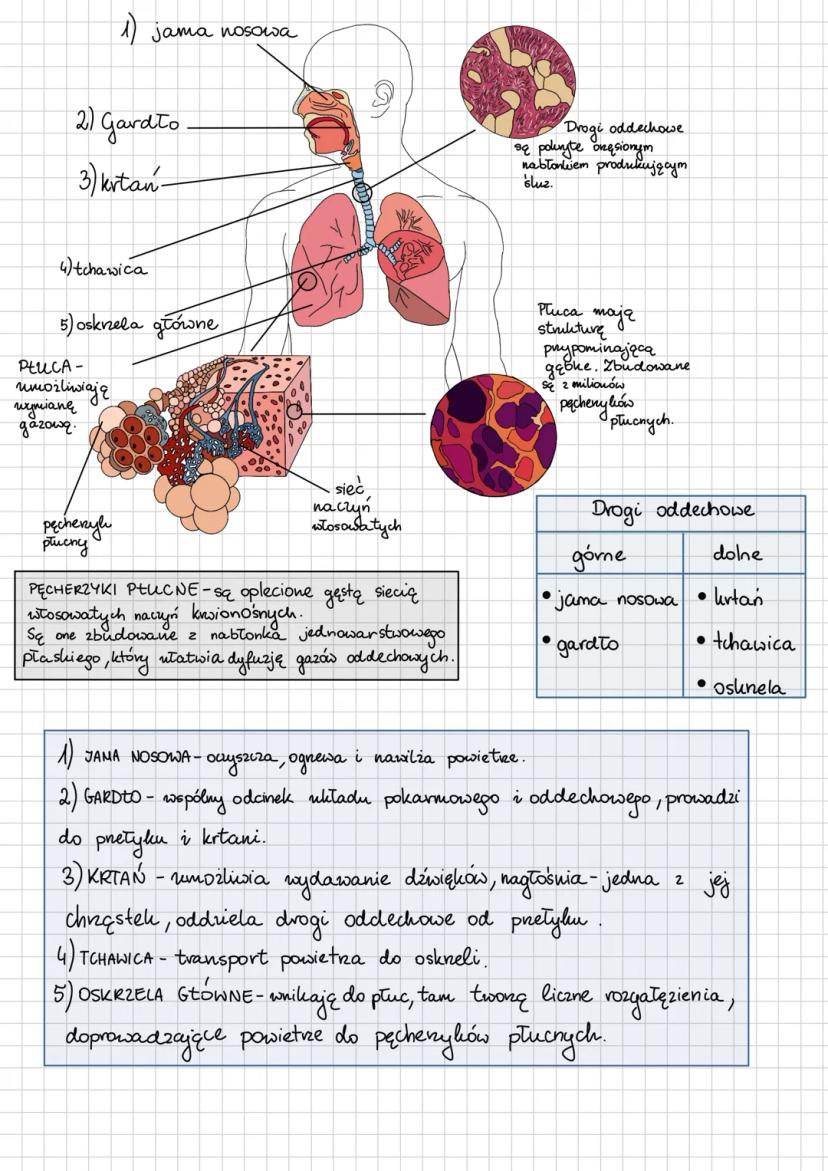 1) jama nosowa
2) Gardło
3) krtań
4) tchawica
5) oskrzela główne
Drogi oddechowe
są pokryte orzęsionym
nabłonkiem produkującym
śluz.
PŁUCA -
umożliwiają
wymianę
gazową.
Płuca mają
strukturę
przypominającą
gąbkę. Zbudowane
są z milionów
pęcherzyków
płucnych.
pęcherzyk
płucny
sieć
naczyń
włosowatych
Drogi oddechowe
górne dolne
• jama nosowa • krtań
• gardło • tchawica
• oskrzela
PĘCHERZYKI PŁUCNE - są oplecione gęstą siecią
włosowatych naczyń krwionośnych.
Są one zbudowane z nabłonka jednowarstwowego
płaskiego, który ułatwia dyfuzję gazów oddechowych.
1) JAMA NOSOWA - oczyszcza, ogrzewa i nawilża powietrze.
2) GARDŁO - wspólny odcinek układu pokarmowego i oddechowego, prowadzi
do przełyku i krtani.
3) KRTAŃ - umożliwia wydawanie dźwięków, nagłośnia - jedna z jej
chrząstek, oddziela drogi oddechowe od przełyku.
4) TCHAWICA - transport powietrza do oskrzeli.
5) OSKRZELA GŁÓWNE - wnikają do płuc, tam tworzą liczne rozgałęzienia,
doprowadzające powietrze do pęcherzyków płucnych.